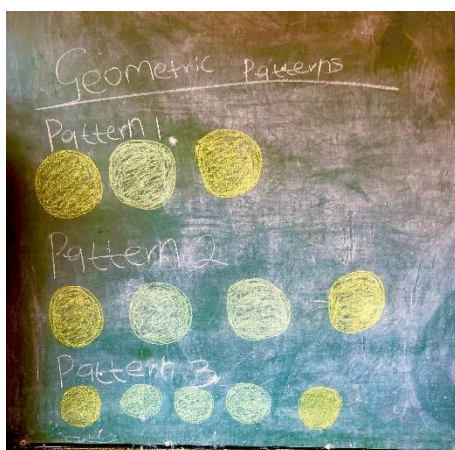 Geometric Patterns
Pattern 1.
Pattern 2
Pattern 3.